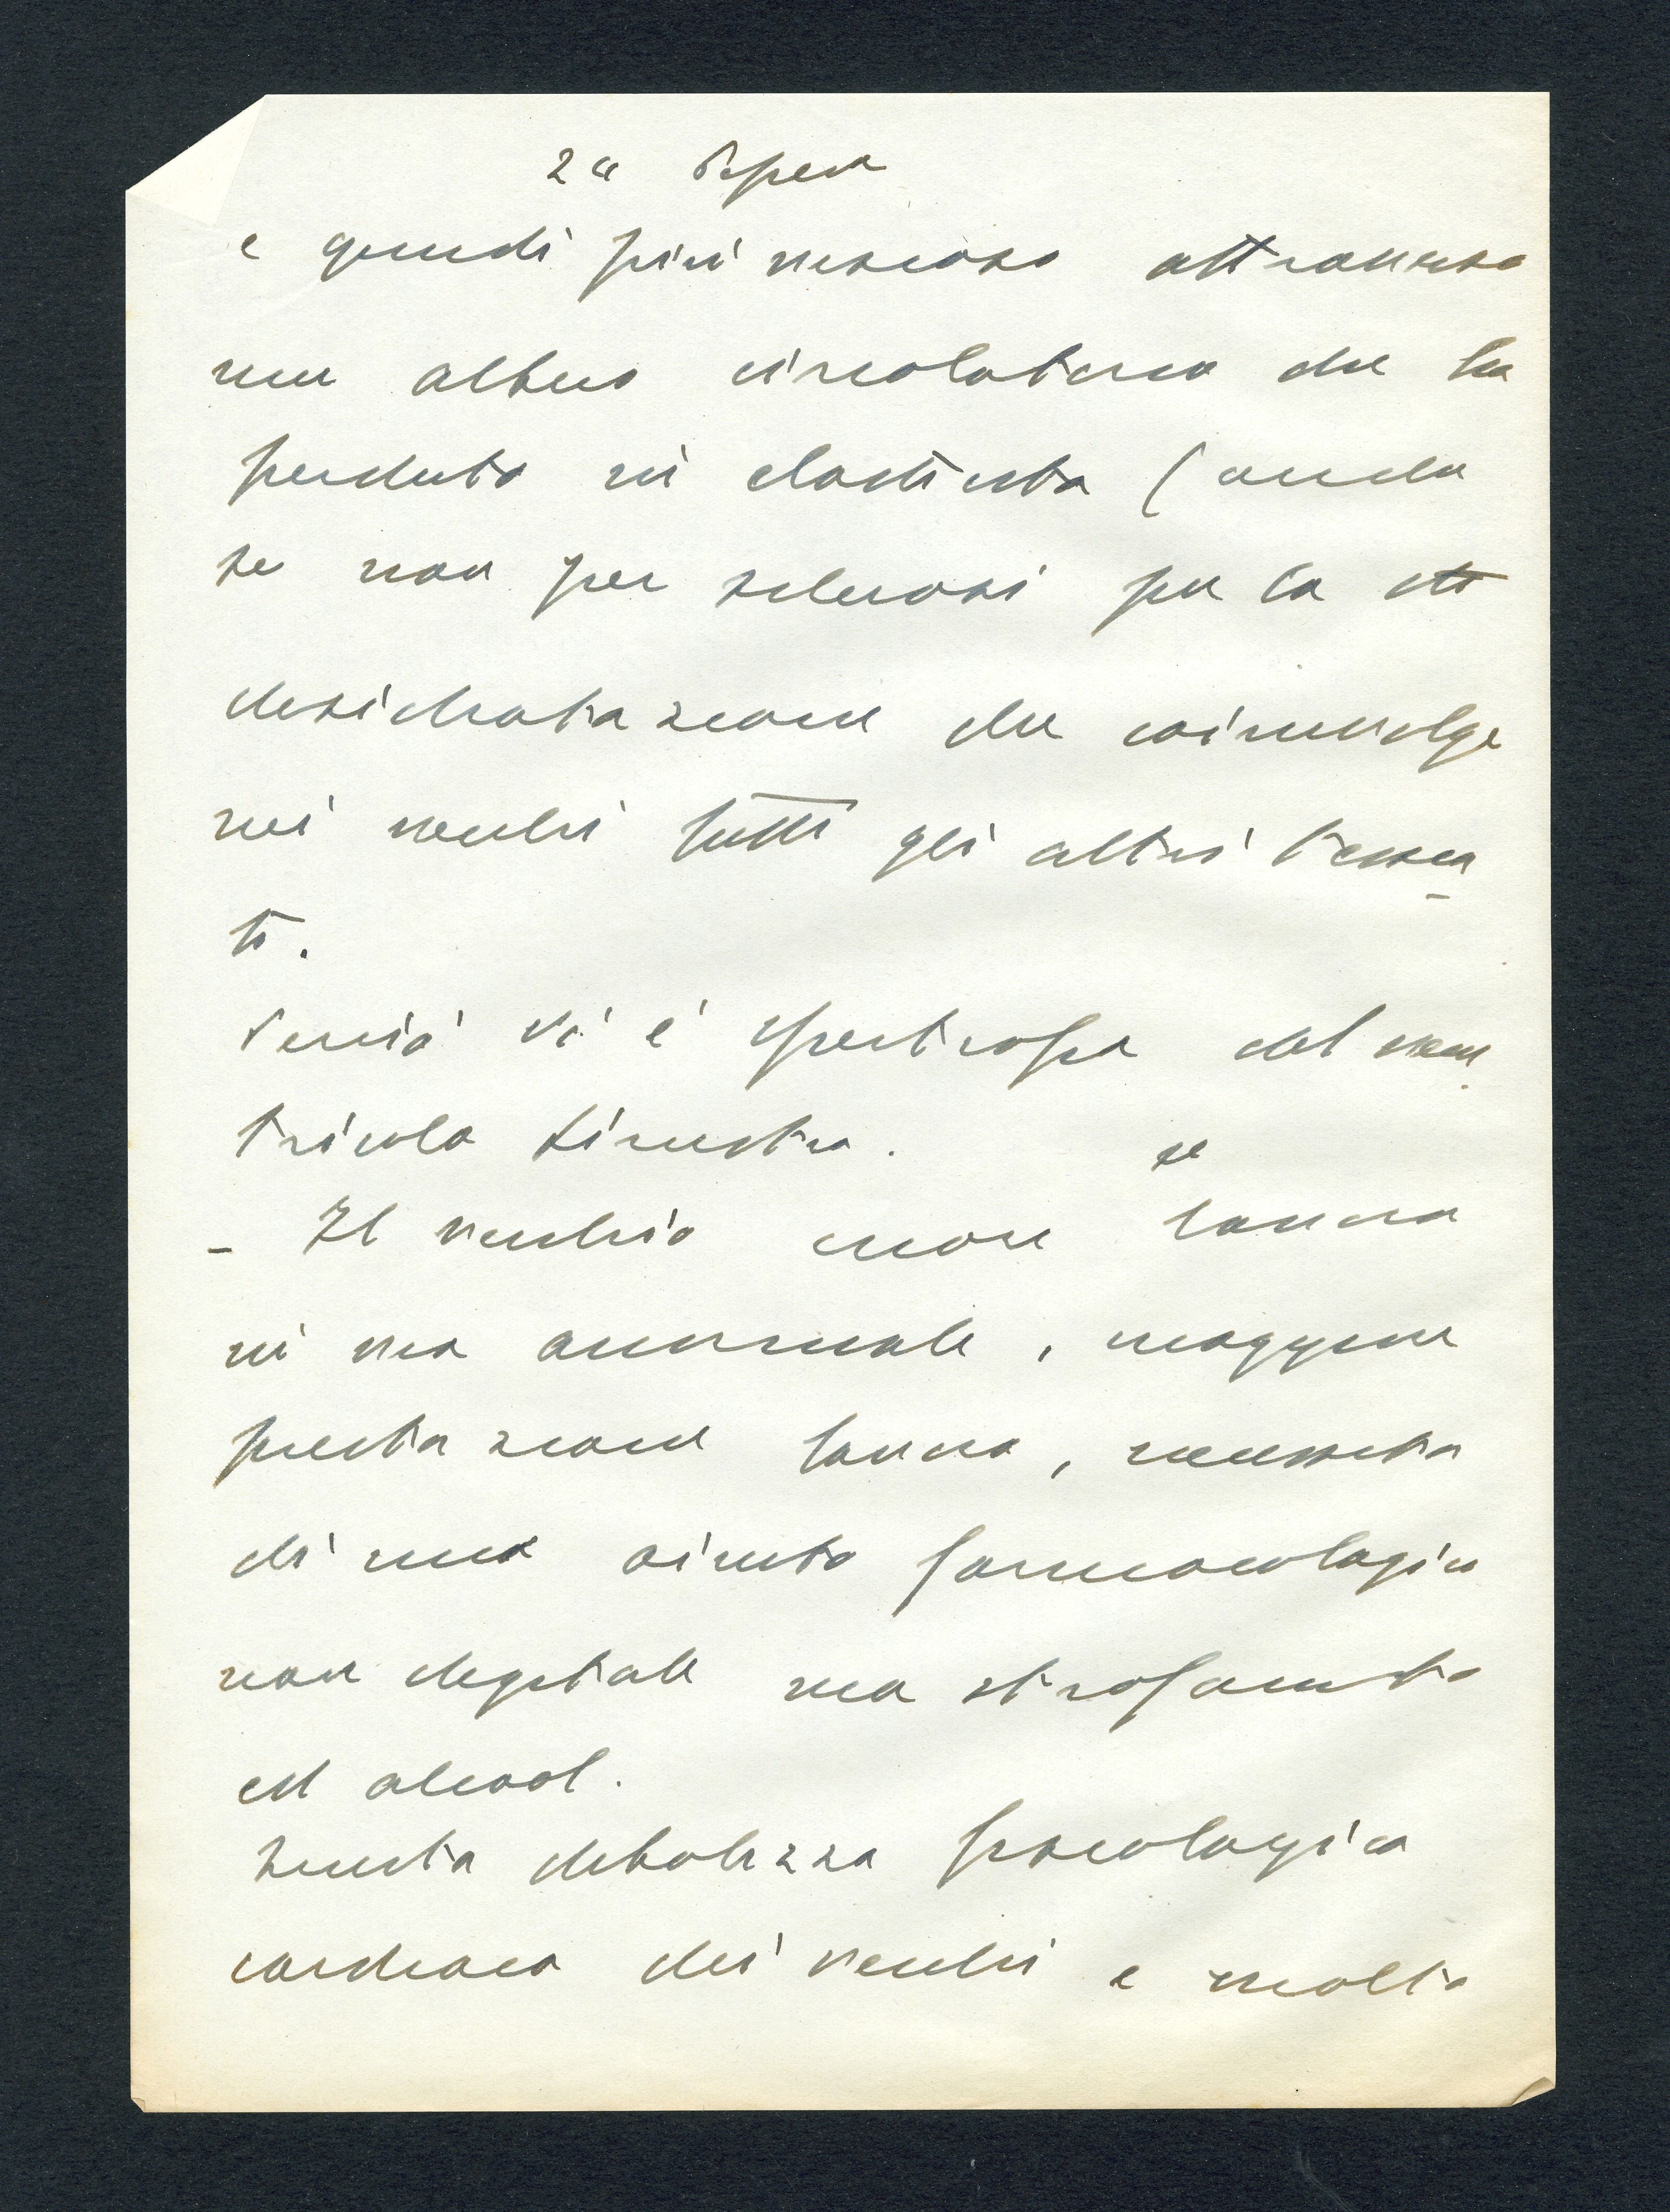 2a
e quindi più vischioso attraverso
un albero circolatorio che ha
perduto in elasticità (anche
se non per sclerosi per la
desidratazione che coinvolge
nei vecchi tutti gli altri tessu-
ti.
Perciò vi è ipertrofia del ven-
tricolo sinistro.
- Il vecchio cuore se lavora
in via anormale, maggiore
prestazione lavoro, necessita
di un aiuto farmacologico
non digitale ma strofanto
ed alcool.
Questa debolezza fisiologica
cardiaca dei vecchi è molto